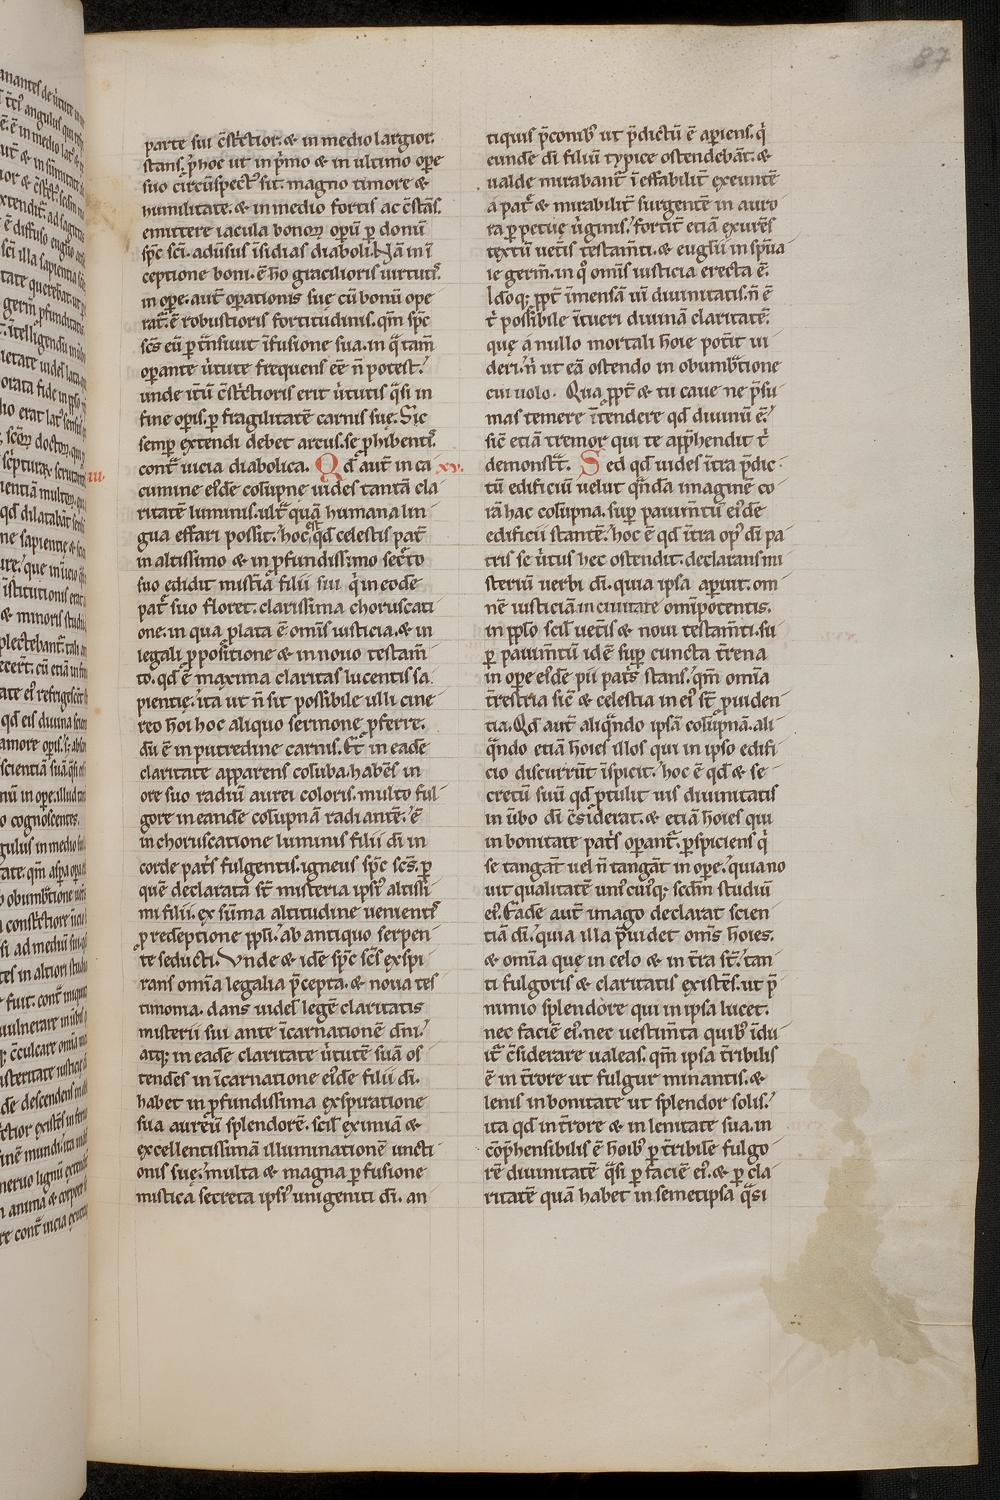 87
parte sui c̄str̄ctior. & in medio largior.
stans. p̱ hoc ut in p̄mo & in ultimo ope
suo circūspect᾽ sit. magno timore &
humilitate. & in medio fortis ac c̄stās.
emittere iacula bonoꝝ opū p̱ donū
sp̄c sc̄i. adūsus īsidias diaboli. Nā in ī
ceptione boni. ē hō gracilioris uirtut᾽.
in ope. aut̄ oꝑationis suę cū bonū ope
rat᾽. ē robustioris fortitudinis. qm̄ sp̄c
sc̄s eū ꝑ t̄nsiuit īfusione sua. in q̄ tam̄
oꝑante ùtute frequens eē n̄ potest.
unde itū c̄str̄ctioris erit ùtutis q̄si in
fine opis. ꝑ fragilitatē carnis suę. Sic
semꝑ extendi debet arcus. se ꝓhibent᾽.
cont̄ uicia diabolica. Qd̄ aut̄ in ca
xv.
cumine ei᾽de colūpne uides tantā cla
ritatē luminis. ult̄ quā humana lin
gua effari possit. hoc ē qd̄ celestis pat̄
in altissimo & in ꝓfundissimo sec̄to
suo edidit mist̄iā filii sui q̇ in eodē
pat̄ suo floret. clarissima choruscati
one. in qua ꝓlata ē omīs iusticia. & in
legali ꝓpositione & in nouo testam̄
to. qd̄ ē maxima claritas lucentis sa
pientię. ita ut n̄ sit possibile ulli cine
reo hoī hoc aliquo sermone ꝓferre.
dū ē in putredine carnis. Et in eadē
claritate apparens colūba. habēs in
ore suo radiū aurei coloris. multo ful
gore in eandē colūpnā radiantē. ē
in choruscatione luminis filii dī in
corde pat̄s fulgentis. igneus sp̄c sc̄s. ꝑ
quē declarata st̄ misteria ipsi᾽ altissi
mi filii. ex sūma altitudine uenient᾽
ꝓ redēptione ppl̄i. ab antiquo serpen
te seducti. Vnde & idē sp̄c sc̄s exspi
rans omīa legalia p̄cepta. & noua tes
timonia. dans uidel᾽ legē claritatis
misterii sui ante īcarnationē dn̄i.
atq; in eadē claritate ùtutē suā os
tendēs in īcarnatione ei᾽dē filii dī.
habet in ꝓfundissima exspiratione
sua aureū splendorē. scil᾽ eximiā &
excellentissimā illuminationē uncti
onis suę. multa & magna ꝑfusione
mistica secreta ipsi᾽ unigeniti dī. an
tiquis p̄conib᾽ ut p̄dictū ē aꝑiens. q̇
eundē dī filiū typice ostendebāt. &
ualde mirabant᾽ ī effabilit᾽ exeuntē
a pat̄ & mirabilit᾽ surgentē in auro
ra ꝑpetuę ùginis. fortit᾽ etiā exurēs
textū uet̄is testam̄ti. & euglīū in sp̄ua
le germ̄. in q̊ omīs iusticia erecta ē.
Idoq; ꝓpt̄ īmensā uī diuinitatis. n̄ ē
t᾽ possibile ītueri diuinā claritatē.
quę a nullo mortali hoīe pot̄it ui
deri. n̄ ut eā ostendo in obumb̄tione
cui uolo. Qua ꝓpt̄ & tu caue ne p̄su
mas temere ītendere qd̄ diuinū ē.
sic̄ etiā tremor qui te app̄hendit t᾽
demonst̄t. Sed qd̄ uides īt̄a p̄dic
tū edificiū uelut q̄ndā imaginē co
rā hac colūpna. suꝑ pauim̄tū ei᾽dē
edificii stantē. hoc ē qd̄ īt̄a op᾽ dī pa
tris se ùtus hec ostendit. declarans mi
steriū uerbi dī. quia ipsa aꝑuit. om
nē iusticiā in ciuitate omīpotentis.
in ppl̄o scil᾽ uet̄is & noui testam̄ti. su
ꝑ pauim̄tū id ē suꝑ cuncta t̄rena
in ope ei᾽dē pii pat̄s stans. qm̄ omīa
t̄restria sic̄ & celestia in ei᾽ st̄ ꝓuiden
tia. Qd̄ aut̄ aliq̄ndo ipsā colūpnā. ali
q̄ndo etiā hoīes illos qui in ipso edifi
cio discurrūt īspicit. hoc ē qd̄ & se
cretū suū qd̄ ꝓtulit uis diuinitatis
in ùbo dī c̄siderat. & etiā hoīes qui
in bonitate pat̄s oꝑant᾽. ꝑspiciens q̇
se tangāt uel n̄ tangāt in ope. quia no
uit qualitatē uni᾽cui᾽q; sedm̄ studiū
ei᾽. Eadē aut̄ imago declarat scien
tiā dī. quia illa p̄uidet omīs hoīes.
& omīa que in celo & in t̄ra st̄. tan
ti fulgoris & claritatis existēs. ut p̄
nimio splendore qui in ipsa lucet.
nec faciē ei᾽. nec uestim̄ta quib᾽ īdu
it᾽ c̄siderare ualeas. qm̄ ipsa t̄ribilis
ē in t̄rore ut fulgur minantis. &
lenis in bonitate ut splendor solis.
ita qd̄ in t̄rore & in lenitate sua. in
cōp̄hensibilis ē hoīb᾽ ꝑ t̄ribilē fulgo
rē diuinitatē q̄si ꝑ faciē ei᾽. & ꝑ cla
ritatē quā habet in semetipsa q̄si